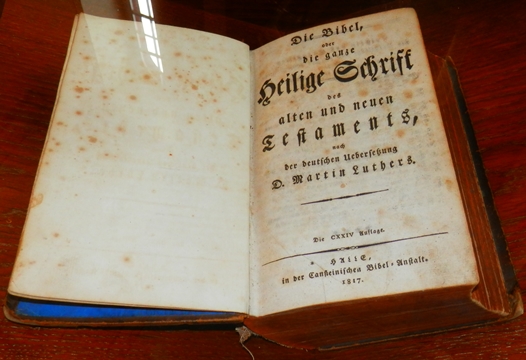 Die Bibel,
oder
die ganze
Heilige Schrift
des
alten und neuen
Testaments,
nach
der deutschen Uebersetzung
D. Martin Luthers.
Die CXXIV Auflage.
HALLE,
in der Cansteinischen Bibel-Anstalt.
1817.